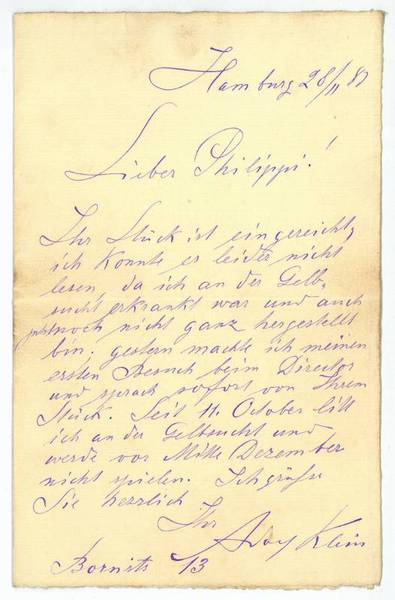 Hamburg 28/11 87
Lieber Philippi!
Ihr Stück ist eingereicht,
ich konnte es leider nicht
lesen da ich an der Gelb„
sucht erkrankt war und auch
jetzt noch nicht ganz hergestellt
bin, gestern machte ich meinen
ersten Besuch beim Director
und sprach sofort von Ihrem
Stück. Seit 11. October litt
ich an der Gelbsucht und
werde vor Mitte Dezember
nicht spielen. Ich grüße
Sie herzlich
Ihr
Adolf Klein
13